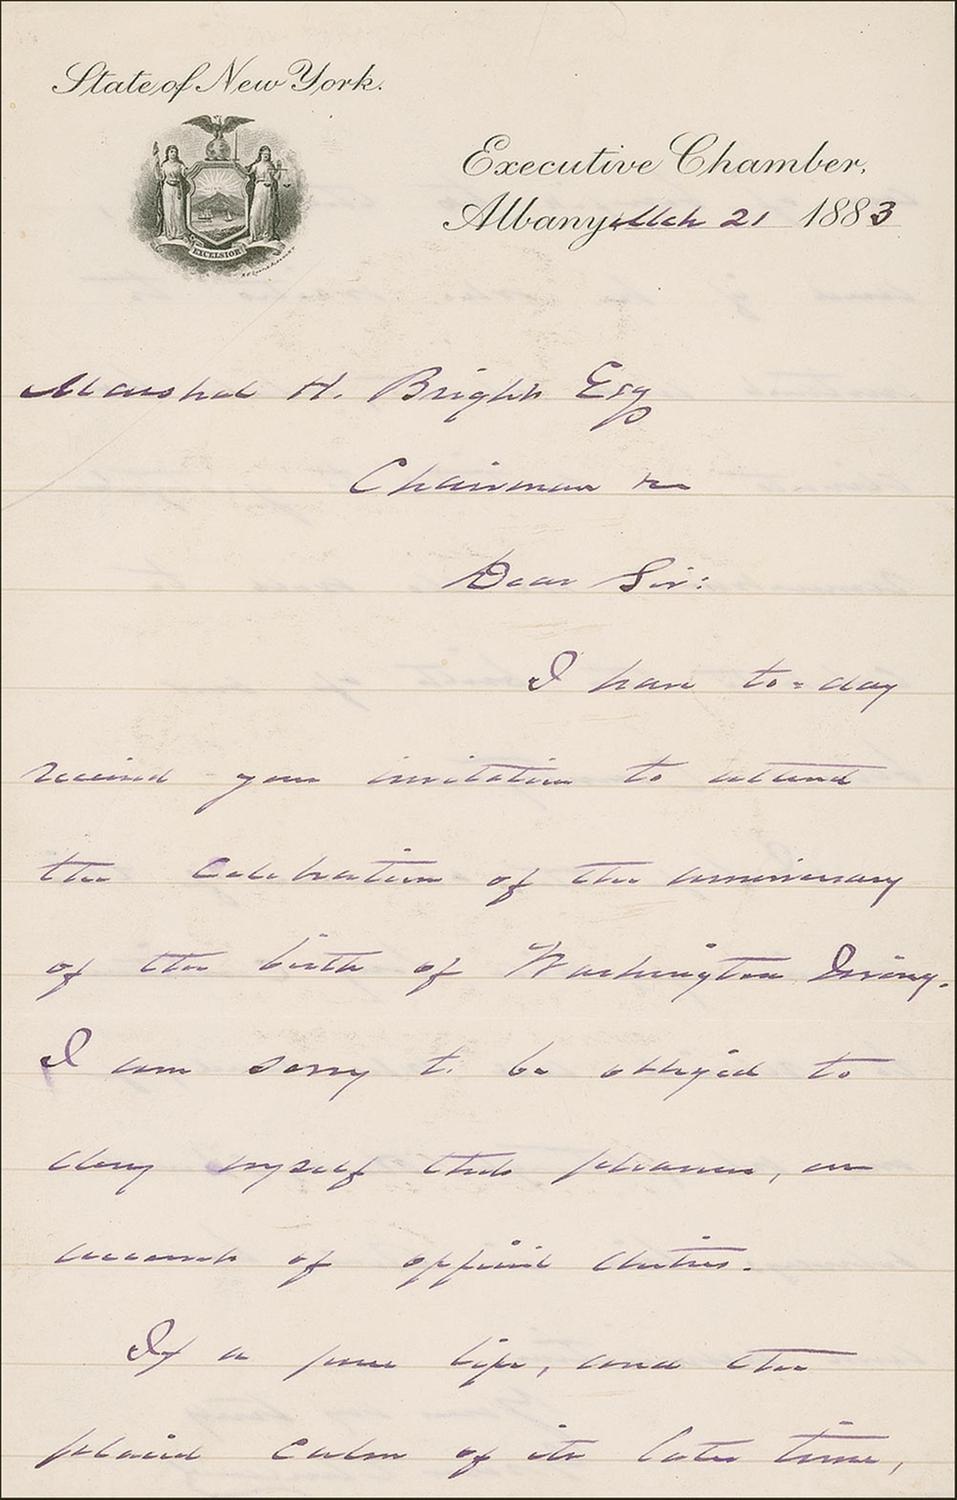 State of New York.
EXCELSIOR
Executive Chamber,
Albany, Mch 21 1883
Marshal H. Bright Esq
Chairman &c
Dear Sir:
I have to-day
received your invitation to attend
the celebration of the anniversary
of the birth of Washington Irving.
I am sorry to be obliged to
deny myself this pleasure, on
account of official duties.
If a pure life, and the
placid calm of its later time,